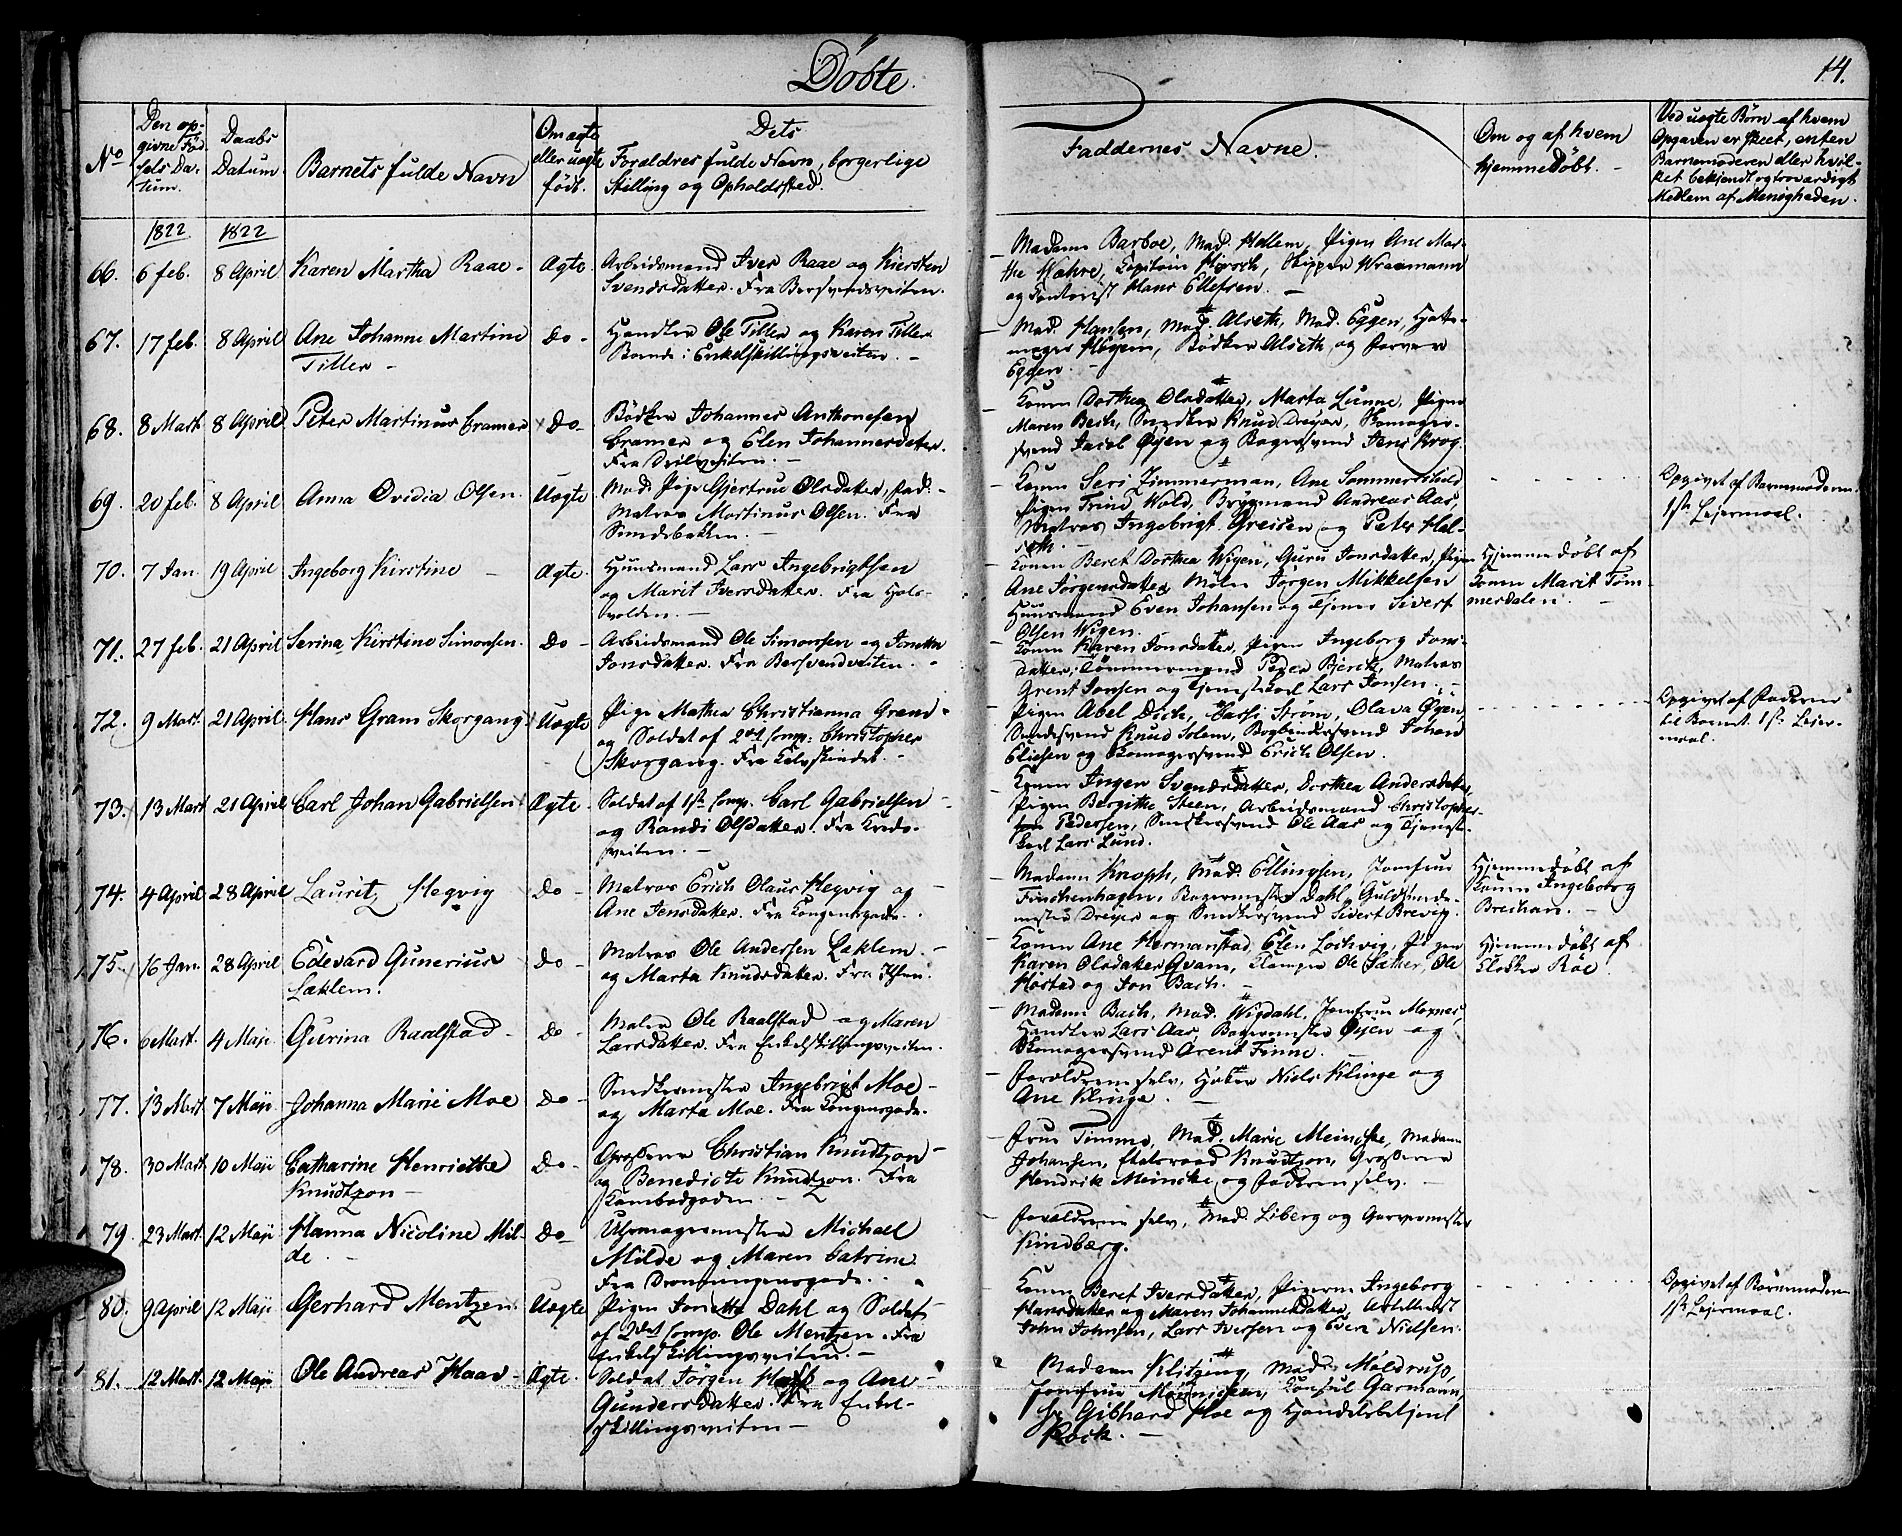 Döbte.
14.
No
Den op-
givne Fød-
sels Da-
tum.
Daabs
Datum.
Barnets fulde Navn
Om ægte
eller uægte
født.
Dets
Forældres fulde Navn, borgerlige
Stilling og Opholdssted.
Faddernes Navne.
Om og af hvem
hjemmedøbt.
Ved uægte Börn af hvem
Opgaven er skeet, enten
Barnemoderen eller hvil-
ket bekjendt og troværdigt
Medlem af Menigheden.
1822 1822
66. 6 feb. 8 April Karen Martha Raae. Ægte.
Arbeidsmand Iver Raae og Kiersten
Svendsdatter. Fra Bersvendsveiten.
Madame Barboe, Mad. Hollem, Pigen Ane Mar-
the Mæhre, Capitein Hirsch, Skipper Wraamann
og Contorist Hans Ellefsen.
67. 17 feb. 8 April Ane Johanne Martine
Tiller
Do
Handler Ole Tiller og Karen Tiller
Boende i Enkelskillingsveiten.
Mad. Hansen, Mad. Alseth, Mad. Eggen, Hatte-
mager Høyem, Bödker Alseth og Farver
Eggen.
68. 8 Mart. 8 April Peter Martinus Cramer Do
Bödker Johannes Anthonesen
Cramer og Elen Johannesdatter.
Fra Ilsveiten.
Konen Dorthea Olsdatter, Marta Lunne, Pigen
Maren Bech, Snedker Knud Dreyer, Skomager-
svend Jacob Øyen og Bagersvend Jens Krog.
69. 20 feb. 8 April Anna Ovidia Olsen. Uægte
Mod. Pige Gjertrue Olsdatter, Fad.
Matros Martinus Olsen. Fra
Steenbakken.
Konen Seri Zimmerman, Ane Sommerschild
Pigen Trine Wold, Brygmand Andreas Aas,
Matros Ingebrigt Greisen og Peter Hal-
seth.
Opgivet af Barnemoderen.
1ste Leiermaal.
70. 7 Jan. 19 April Ingeborg Kirstine Ægte.
Huusmand Lars Ingebrigtsen
og Marit Iversdatter. Fra Hols-
volden.
Konen Beret Dorthea Wigen, Guru Jonsdatter, Pigen
Ane Jörgensdatter, Möller Jörgen Mikkelsen
Huusmand Even Johansen og Tjener Sivert
Olsen Wigen.
Hjemme döbt af
Konen Marit Töm-
merdalen.
71. 27 feb. 21 April Serina Kirstine Simonsen. Do
Arbeidsmand Ole Simonsen og Jonetta
Jonsdatter. Fra Bersvendveiten.
Konen Karen Jonsdatter, Pigen Ingeborg Jons-
datter, Tömmermand Peder Bjerck, Matros
Grent Jonsen og Tjenestkarl Lars Jonsen.
72. 9 Mart. 21 April. Hans Gram Skorgang Uægte
Pige Mathea Christianna Gram
og Soldat af 2det Comp: Christopher
Skorgang. Fra Kalvskindet.
Pigen Abel Disch, Harse Ström, Olava Øyen,
Smedesvend Knud Solem, Bogbindersvend Johan
Eliesen og Skomagersvend Erich Olsen.
Opgivet af Faderen
til Barnet. 1ste Leier-
maal.
73. 13 Mart 21 April Carl Johan Gabrielsen Ægte
Soldat af 1ste Comp. Carl Gabrielsen
og Randi Olsdatter. Fra Kreds-
veiten.
Konen Ingen Svendsdatter, Dorthea Andersdatter,
Pigen Bergithe Steen, Arbeidsmand Christopher
Pedersen, Snedkersvend Ole Aas og Tjenest-
karl Lars Lund.
74. 4 April 28 April Lauritz Hegvig Do
Matros Erich Olaus Hegvig og
Ane Jensdatter. Fra Kongensgade.
Madame Knoph, Mad. Ellingsen, Jomfrue
Finchenhagen, Bagermester Dahl, Guldsmede-
mester Dreyer og Snedkersvend Sivert Brevig.
Hjemmedöbt af
Konen Ingeborg
Brechan.
75. 16 Jan. 28 April Edevard Gunerius
Laklem.
Do
Matros Ole Andersen Laklem
og Marta Knudsdatter. Fra Ihlen.
Konen Ane Hermanstad, Elen Lochvig, Pigen
Karen Olsdatter Qvam, Klamper Ole Sæther, Ole
Kostad og Jon Bach.
Hjemme döbt af
Klokker Röe.
76. 6 Mart. 4 Maji Gurina Raalstad Do
Maler Ole Raalstad og Maren
Larsdatter. Fra Enkelskillingsveiten.
Madame Bach, Mad. Wigdahl, Jomfrue Moxnes,
Handler Lars Aas, Bagermester Øyen og
Skomagersvend Arent Finne.
77. 13 Mart. 7 Maji Johanna Marie Moe Do
Snedkermester Ingebrigt Moe
og Marta Moe. Fra Kongensgade.
Forældrene selv, Høker Niels Klinge og
Ane Klinge.
78. 30 Mart. 10 Maji Catharine Henriette
Knudtzon
Do
Grosserer Christian Knudtzon
og Benedicte Knudtzon. Fra
Kambodgaden.
Frue Timme, Mad. Marie Meincke, Madame
Johansen, Etatsraad Knudtzon, Grosserer
Hendrik Meincke og Faderen selv.
79. 23 Mart. 12 Maji Hanna Nicoline Mil-
de.
Do
Uhrmagermester Michael
Milde og Maren Catrine.
Fra Dronningensgade.
Forældrene selv, Mad. Liberg og Garvermester
Kindberg.
80. 9 April 12 Maji Gerhard Mentzen. Uægte
Pigen Jonetta Dahl og Soldat
af 2det Comp. Ole Mentzen. Fra
Enkelskillingsveiten.
Konen Beret Iversdatter, Pigerne Ingeborg
Hansdatter og Maren Johannesdatter, Artillerist
John Johnsen, Lars Iversen og Even Nielsen.
Opgivet af Barnemoderen
1ste Leiermaal.
81. 12 Mart. 12 Maji Ole Andreas Haar Ægte.
Soldat Jörgen og Ane
Gundersdatter. Fra Enkel-
skillingsveiten
Madam Klitzing, Mad. Moldrup,
Jomfrue Consul Garmann,
Hr Gibhard Moe og Handelsbetjent
Rock.